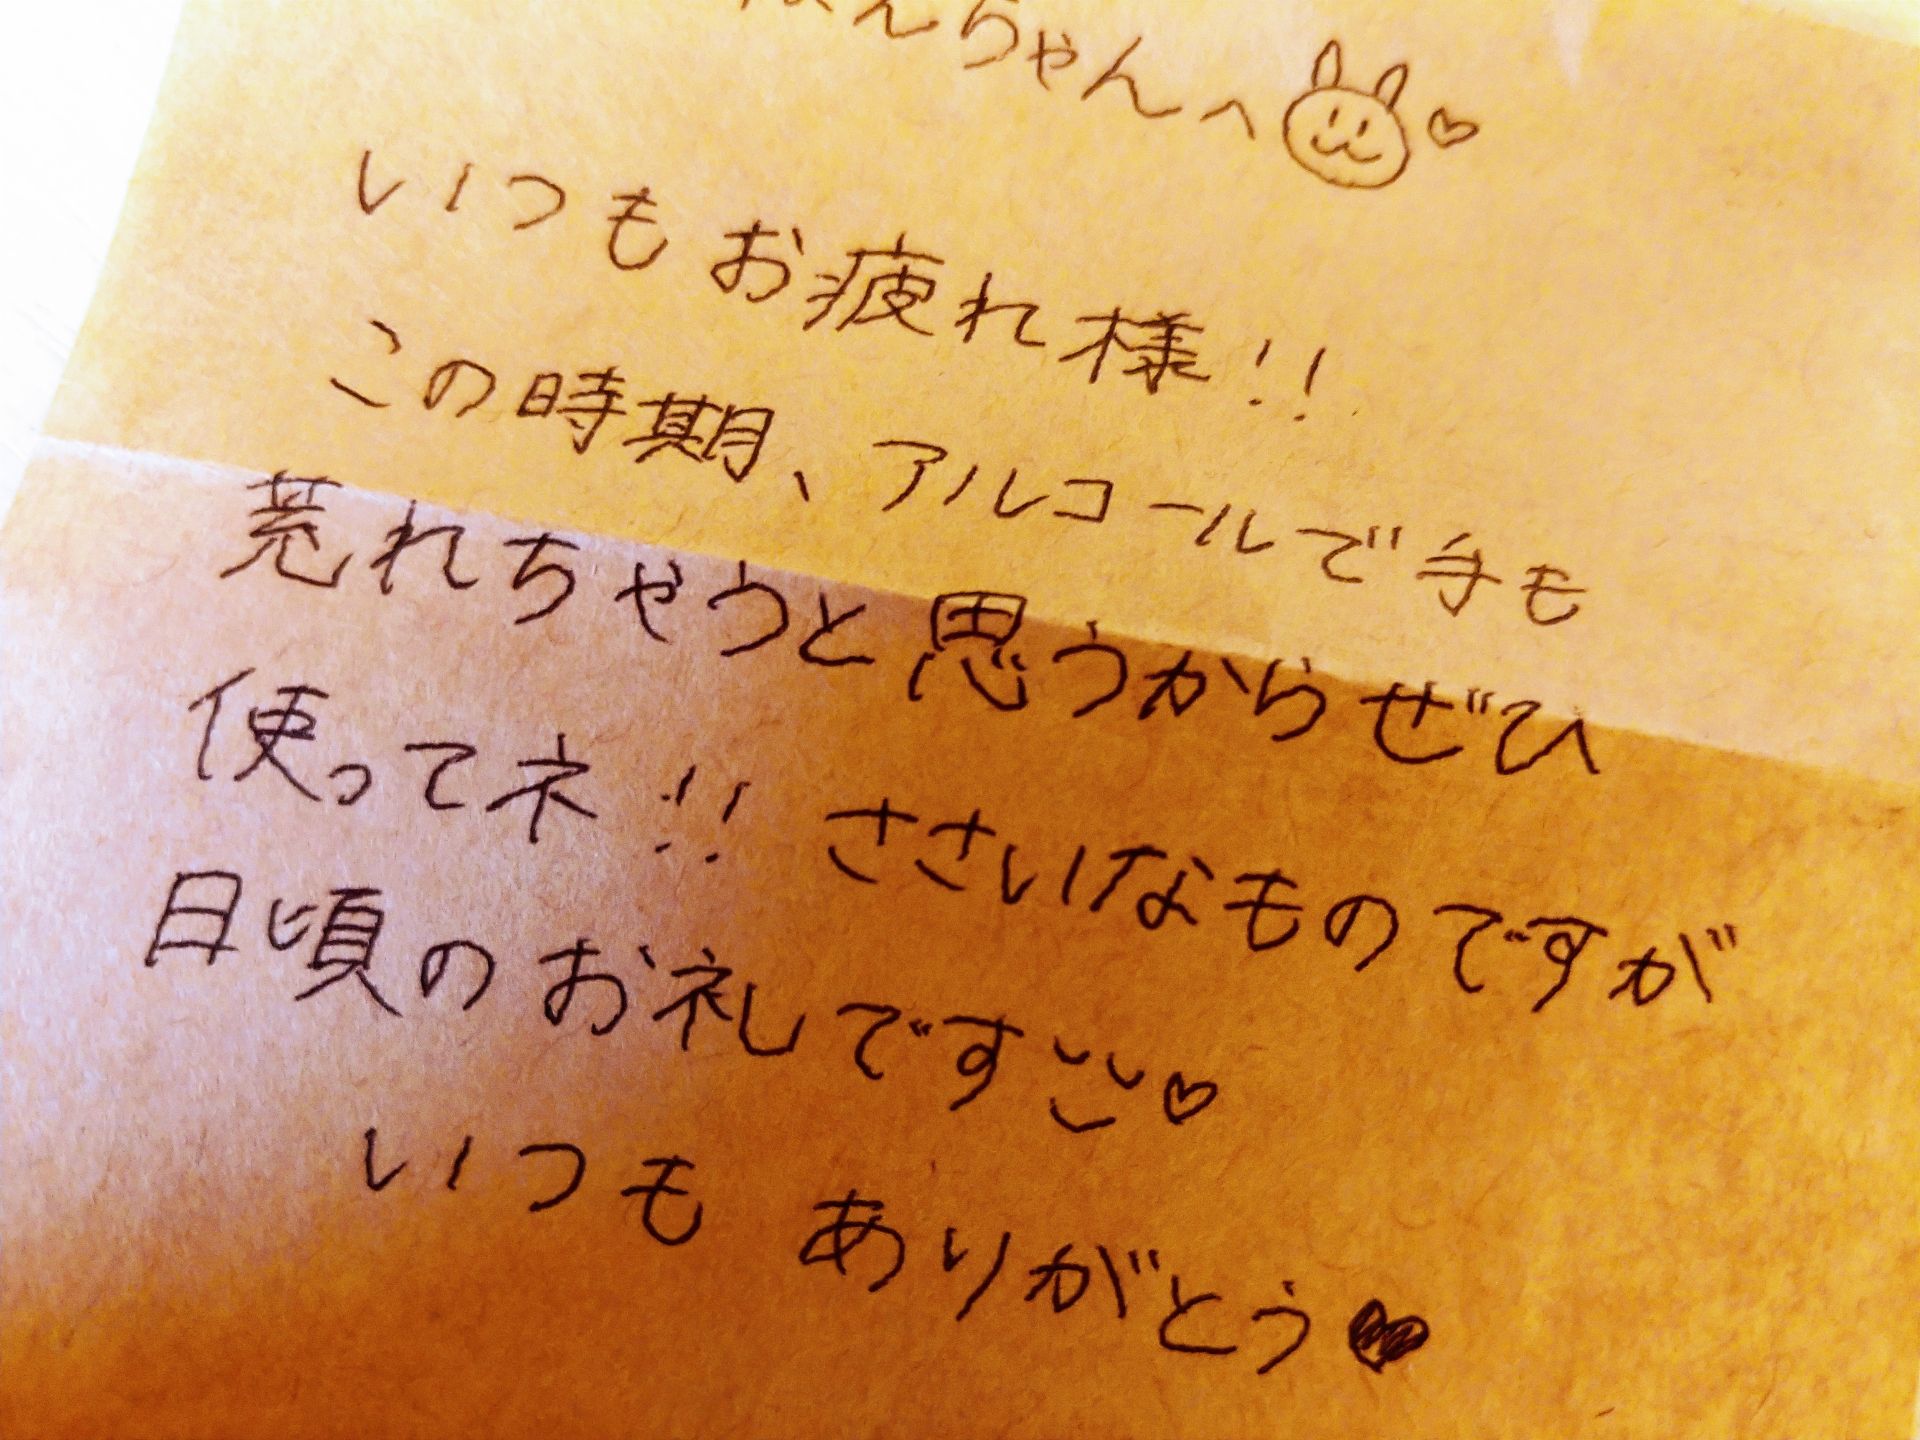 んちゃんへ♡
いつもお疲れ様!!
この時期、アルコールで手も
荒れちゃうと思うからぜひ
使ってネ!! ささいなものですが
日頃のお礼です♡
いつも ありがとう♥